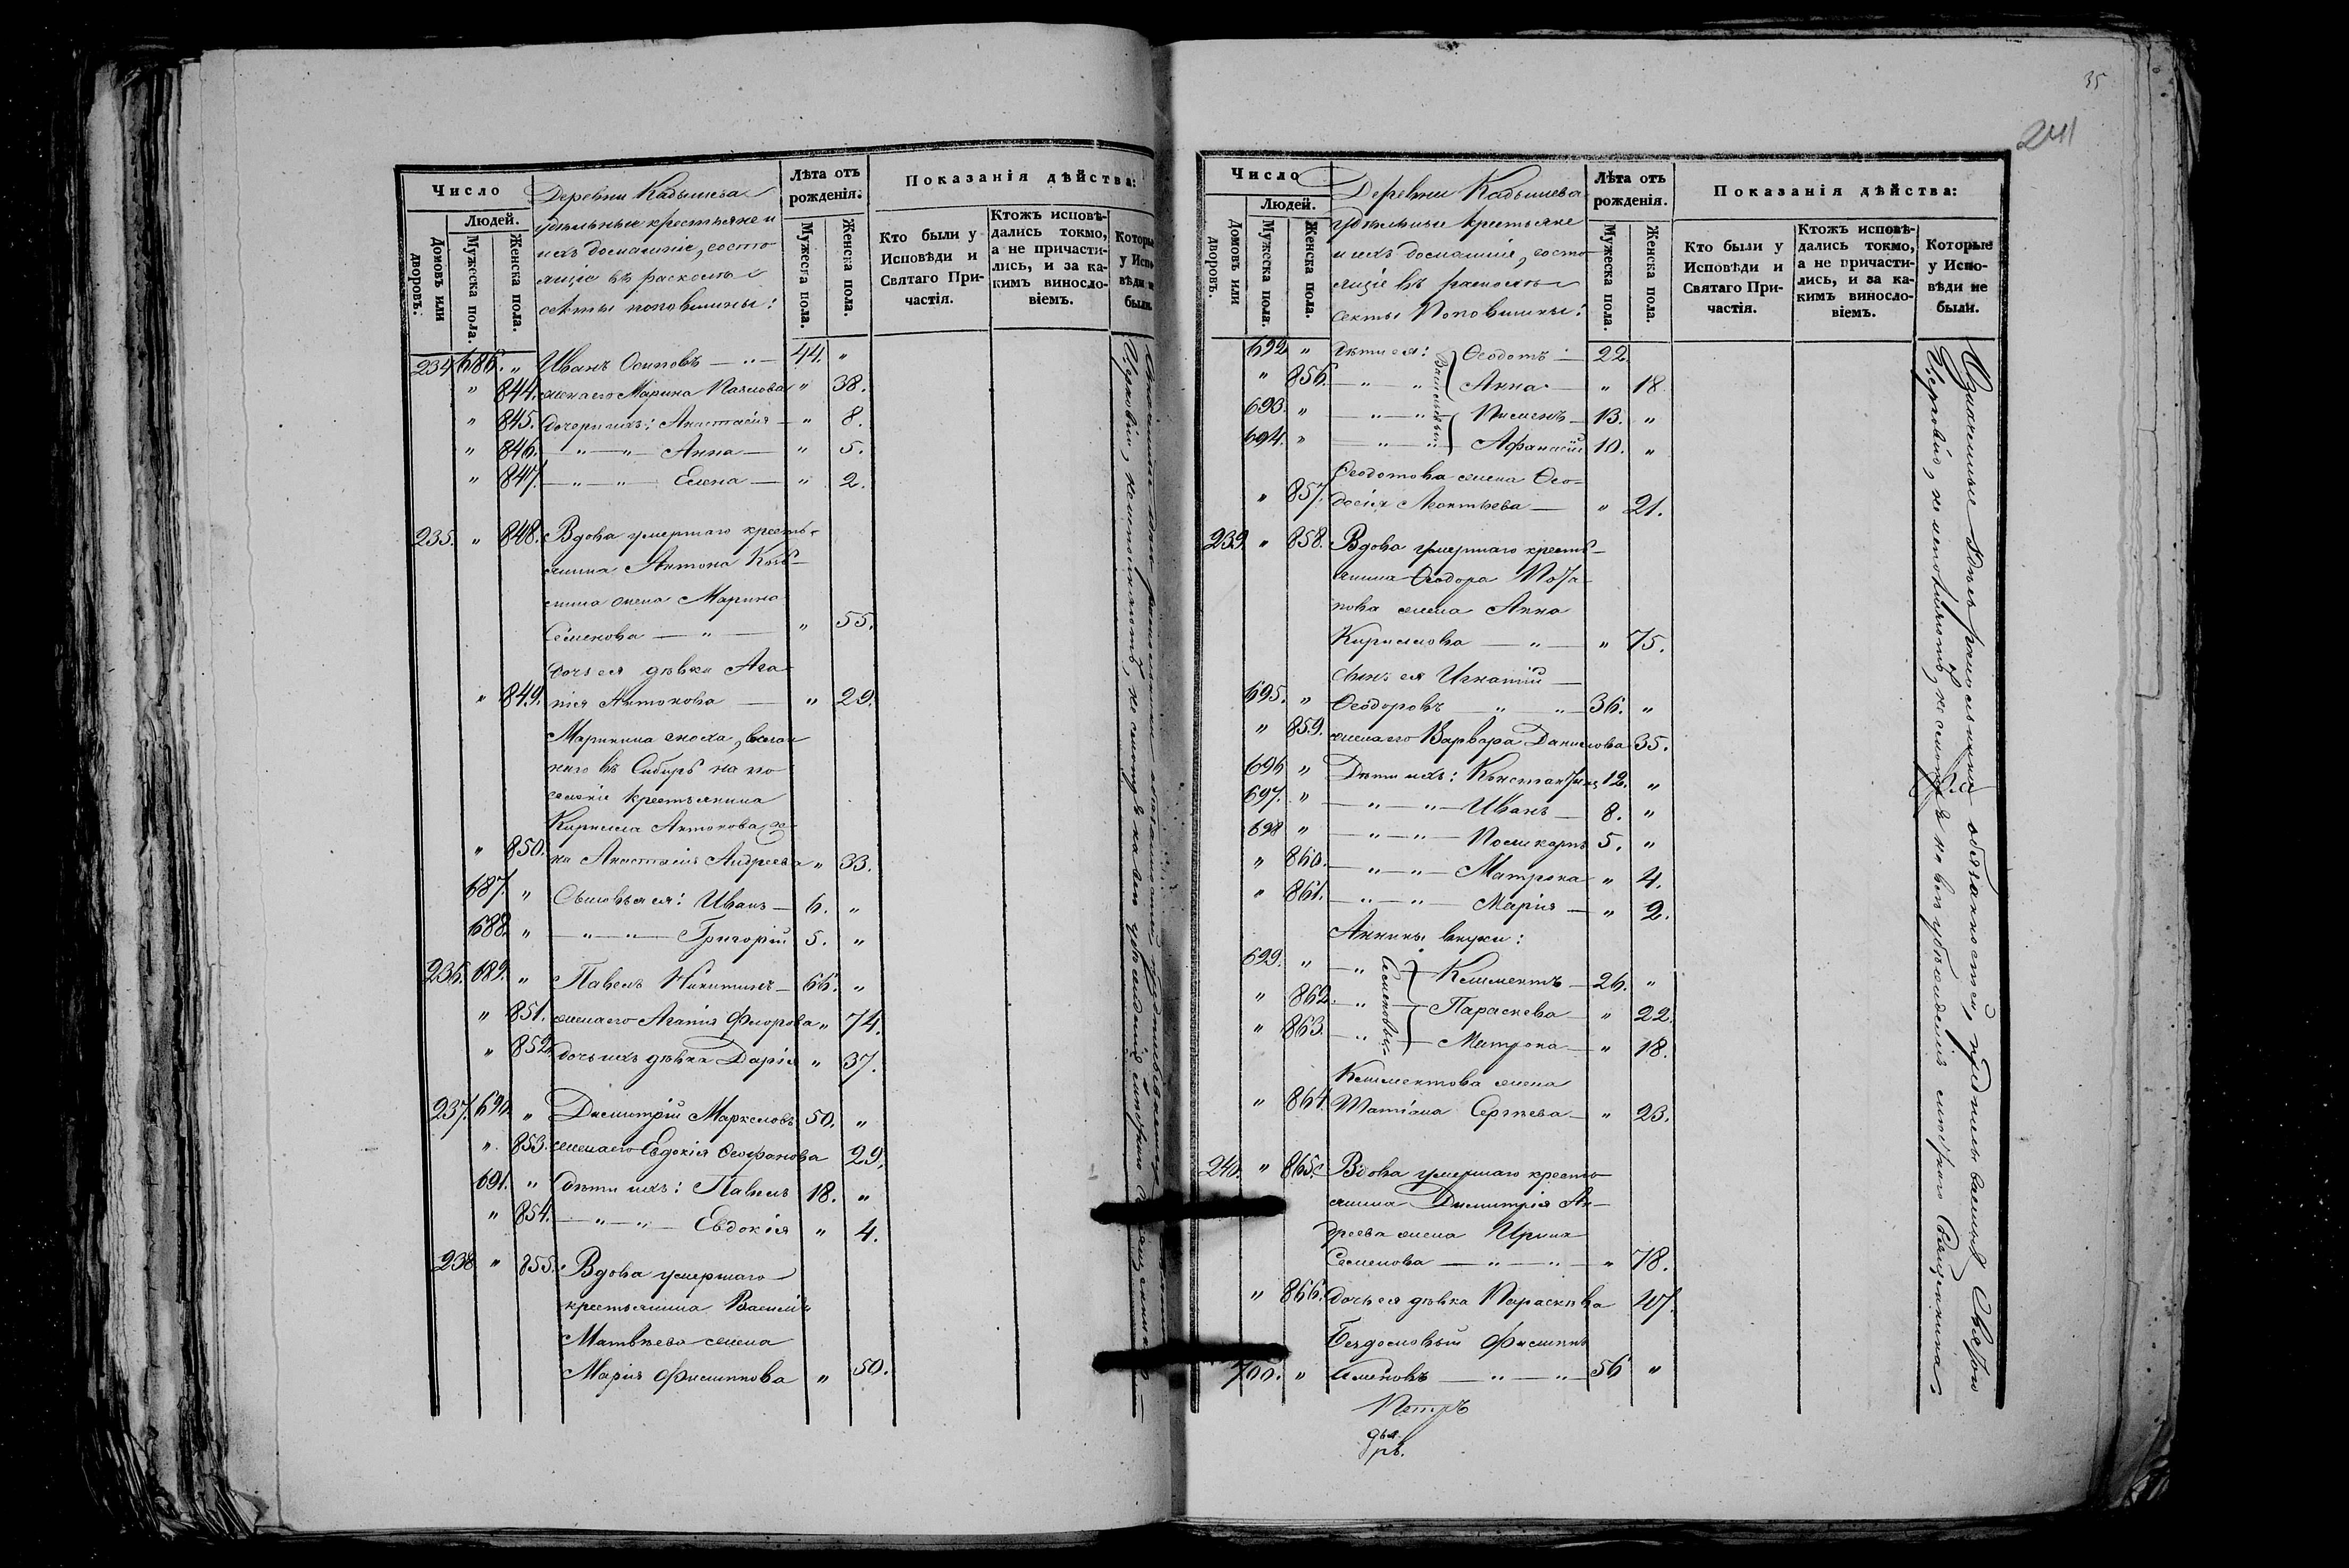 Число
Людей.
Домовъ или дворовъ.
Мужеска пола.
Женска пола.
Деревни Кадышева
удѣльные крестьяне и
ихъ домашніе, состо
ящіе въ расколѣ
секты поповщины:
Лѣта отъ рожденія:
Мужеска пола.
Женска пола.
Показанія дѣйства:
Кто были у Исповѣди и Святаго Причастія.
Ктожъ исповѣ-
дались токмо,
а не причасти-
лись, и за ка-
кимъ винословіемъ.
Которые
у Испо-
вѣди не
были.
234. 686. „ Иванъ Осиповъ — „ — 44. „
„ 844. жена его Марина Павлова „ 38.
„ 845. Дочери ихъ: Анастасія — „ 8.
„ 846. — „ — „ — Анна — „ 5.
„ 847. — „ — „ — Елена — „ 2.
235. „ 848. Вдова умершаго кресть-
янина Антона Козь-
мина жена Марина
Семенова — „ — „ 55.
Дочь ея дѣвка Ага-
„ 849. пія Антонова — „ 29.
Маринина сноха,
въ Сибирь на по-
селеніе крестьянина
Кирилла Антонова же-
„ 850. на Анастасія Андреева „ 33.
687. „ Сыновья ея: Иванъ — 6. „
688. „ — „ — „ — Григорій 5. „
236. 689. „ Павелъ Никитинъ — 66. „
„ 851. жена его Агапія Флорова „ 74.
„ 852. дочь ихъ дѣвка Дарія „ 37.
237. 690. „ Димитрій Маркеловъ 50. „
„ 853. жена его Евдокія Ѳеофанова 29.
691. „ Дѣти ихъ: Павелъ 18. „
„ 854. — „ — „ — Евдокія „ 4.
238 „ 855. Вдова умершаго
крестьянина Василія
Матвѣева жена
Марія Филиппова „ 50.
35
241
Число
Людей.
Домовъ или дворовъ.
Мужеска пола.
Женска пола.
Деревни Кадышева
удѣльные крестьяне
и ихъ домашніе, состо
ящіе въ расколѣ
секты Поповщины:
Лѣта отъ рожденія.
Мужеска пола.
Женска пола.
Показанія дѣйства:
Кто были у Исповѣди и Святаго Причастія.
Ктожъ исповѣ-
дались токмо,
а не причасти-
лись, и за ка-
кимъ винословіемъ.
Которые
у Испо-
вѣди не
были.
692. „ Дѣти ея: Васильевы Ѳеодотъ — 22
„ 856. — „ „ Анна — „ 18.
693. „ — „ — „ — Пименъ — 13. „
694. „ — „ — „ — Афанасій 10. „
Ѳеодотова жена Ѳео-
„ 857. досія Леонтьева — „ 21.
239. „ 858. Вдова умершаго кресть-
янина Ѳеодора Пота-
пова жена Анна
Кириллова — „ — „ 75.
Сынъ ея Игнатій —
695. „ Ѳеодоровъ — „ — „ — 36. „
„ 859. жена его Варвара Данилова 35.
696 „ Дѣти ихъ: Константинъ 12. „
697. „ — „ — „ — Иванъ — 8. „
698 „ — „ — „ — Поликарпъ 5. „
„ 860. — „ — „ — Матрона „ 4.
„ 861. — „ — „ — Марія — „ 2.
Аннины внуки:
699. „ — „ Семеновы Климентъ — 26. „
„ 862. — „ Параскева — „ 22.
„ 863. — „ Матрона — „ 18.
Климентова жена
„ 864. Татіана Сергѣева — „ 23.
240. „ 865. Вдова умершаго кресть-
янина Димитрія Ан-
дреева жена Ирина
Семенова — „ — „ — „ 78.
„ 866. дочь ея дѣвка Параскева 47.
Бездомовый Филиппъ
700. „ — „ — „ — 56 „
Одержимые раскольники обязанностей, предписываемыхъ Святою
Церковію, не исполняютъ, не смотря на всѣ убѣжденія мѣстнаго Священника.
Петръ